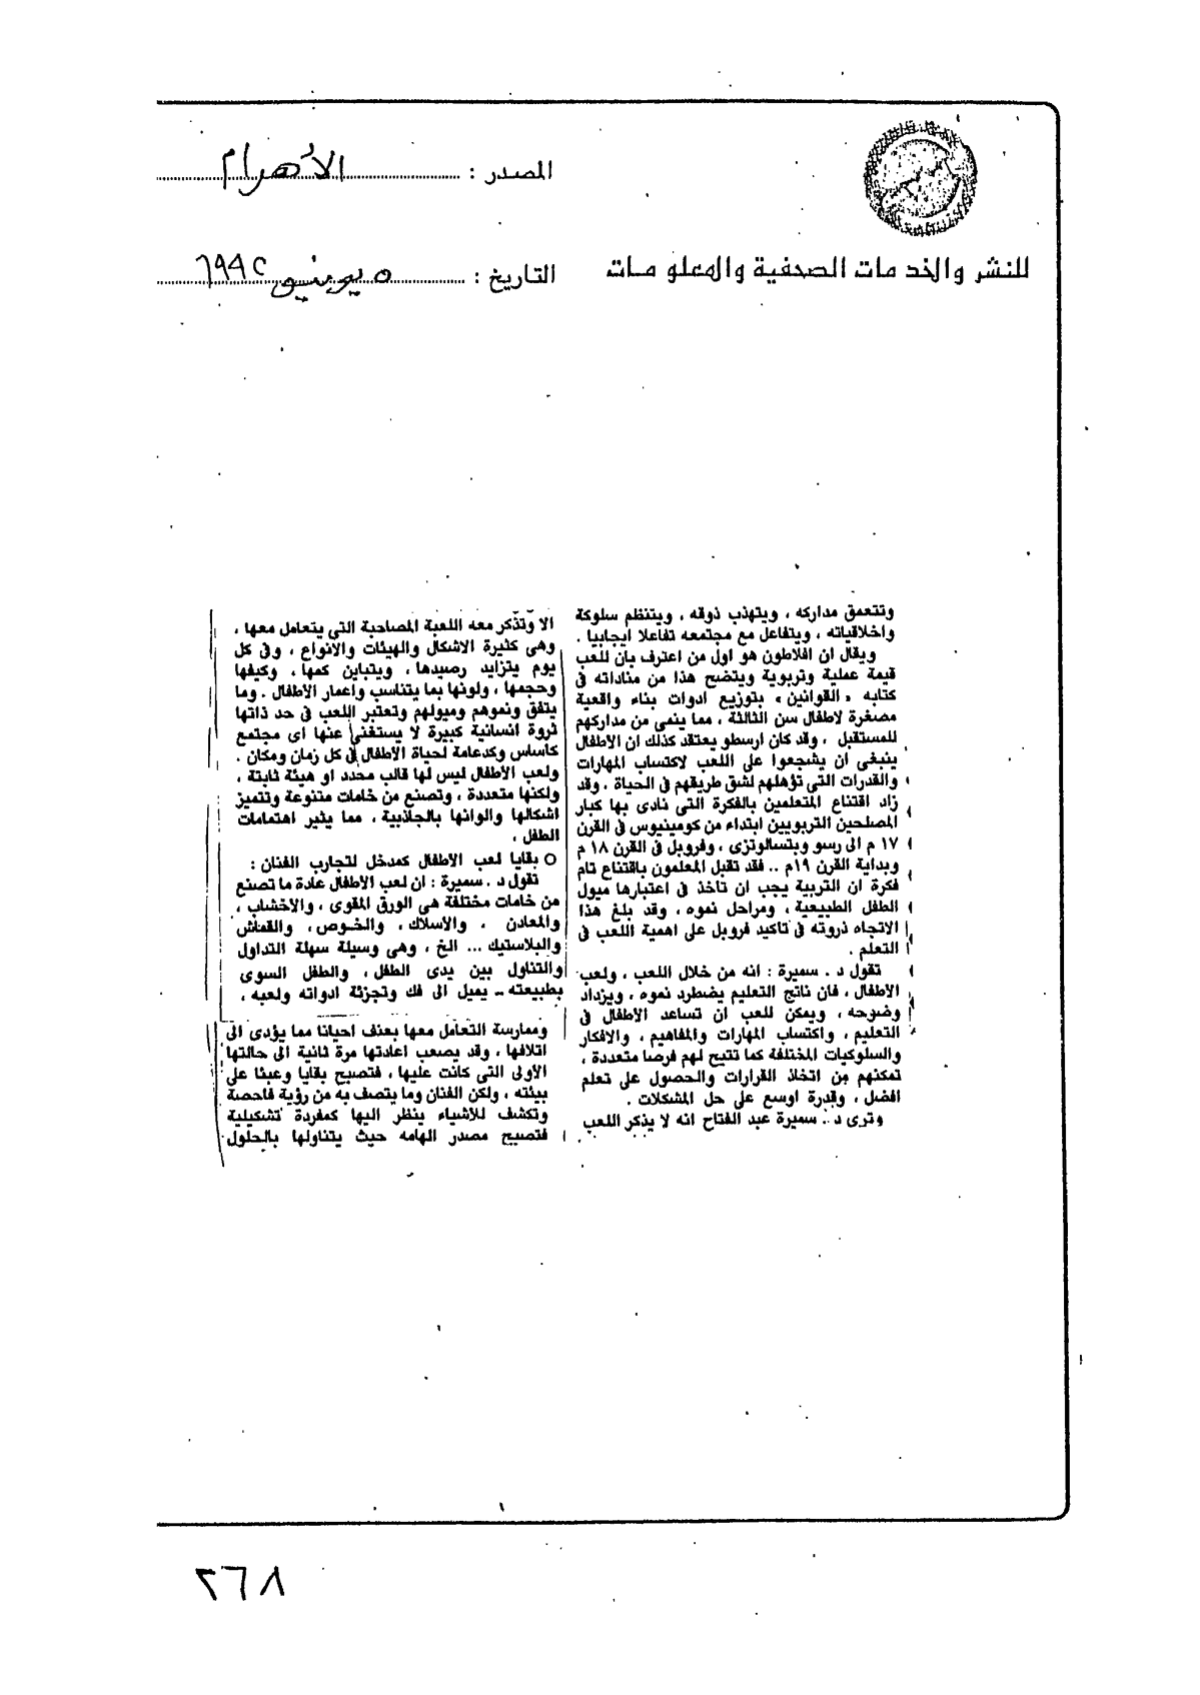 المصدر : الأهرام
للنشر والخدمات الصحفية والمعلومات
التاريخ : ٥ يونيو ١٩٩٢
وتتعمق مداركه ، ويتهذب ذوقه ، ويتنظم سلوكة
واخلاقياته ، ويتفاعل مع مجتمعه تفاعلا ايجابيا .
ويقال ان افلاطون هو اول من اعترف بان للعب
قيمة عملية وتربوية ويتضح هذا من مناداته فى
كتابه « القوانين » بتوزيع ادوات بناء واقعية
مصغرة لاطفال سن الثالثة ، مما ينمى من مداركهم
للمستقبل ، وقد كان ارسطو يعتقد كذلك ان الاطفال
ينبغى ان يشجعوا على اللعب لاكتساب المهارات
والقدرات التى تؤهلهم لشق طريقهم فى الحياة . وقد
زاد اقتناع المتعلمين بالفكرة التى نادى بها كبار
المصلحين التربويين ابتداء من كومينيوس فى القرن
١٧ م الى رسو وبتسالوتزى ، وفروبل فى القرن ١٨ م
وبداية القرن ١٩م .. فقد تقبل المعلمون باقتناع تام
فكرة ان التربية يجب ان تاخذ فى اعتبارها ميول
الطفل الطبيعية ، ومراحل نموه ، وقد بلغ هذا
الاتجاه ذروته فى تاكيد فروبل على اهمية اللعب فى
التعلم .
تقول د . سميرة : انه من خلال اللعب ، ولعب
الاطفال ، فان ناتج التعليم يضطرد نموه ، ويزداد
وضوحه ، ويمكن للعب ان تساعد الاطفال فى
التعليم ، واكتساب المهارات والمفاهيم ، والافكار
والسلوكيات المختلفة كما تتيح لهم فرصا متعددة ،
تمكنهم من اتخاذ القرارات والحصول على تعلم
افضل ، وقدرة اوسع على حل المشكلات .
وترى د . سميرة عبد الفتاح انه لا يذكر اللعب
الا وتذكر معه اللعبة المصاحبة التى يتعامل معها ،
وهى كثيرة الاشكال والهيئات والانواع ، وفى كل
يوم يتزايد رصيدها ، ويتباين كمها ، وكيفها
وحجمها ، ولونها بما يتناسب واعمار الاطفال . وما
يتفق ونموهم وميولهم وتعتبر اللعب فى حد ذاتها
ثروة انسانية كبيرة لا يستغنى عنها اى مجتمع
كاساس وكدعامة لحياة الاطفال فى كل زمان ومكان .
ولعب الأطفال ليس لها قالب محدد او هيئة ثابتة ،
ولكنها متعددة ، وتصنع من خامات متنوعة وتتميز
اشكالها والوانها بالجاذبية ، مما يثير اهتمامات
الطفل .
○ بقايا لعب الاطفال كمدخل لتجارب الفنان :
تقول د . سميرة : ان لعب الاطفال عادة ما تصنع
من خامات مختلفة هى الورق المقوى ، والاخشاب ،
والمعادن ، والاسلاك ، والخوص ، والقماش
والبلاستيك ... الخ ، وهى وسيلة سهلة التداول
والتناول بين يدى الطفل ، والطفل السوى
بطبيعته ـ يميل الى فك وتجزئة ادواته ولعبه ،
وممارسة التعامل معها بعنف احيانا مما يؤدى الى
اتلافها ، وقد يصعب اعادتها مرة ثانية الى حالتها
الأولى التى كانت عليها ، فتصبح بقايا وعبئا على
بيئته ، ولكن الفنان وما يتصف به من رؤية فاحصة
وتكشف للأشياء ينظر اليها كمفردة تشكيلية
فتصبح مصدر الهامه حيث يتناولها بالحلول
٢٦٨